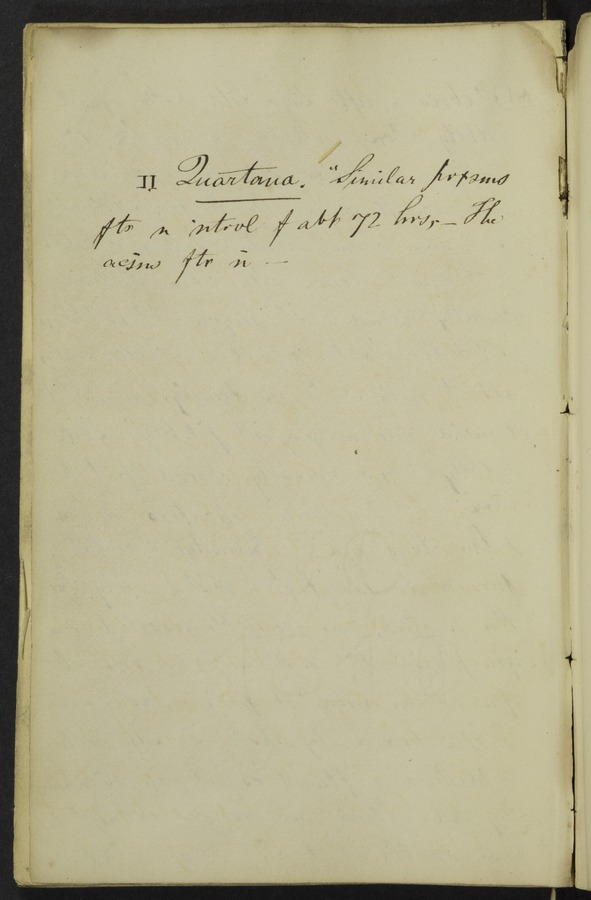 II Quartana. "Similar prxsms
ftr n intrvl f abt 72 hrs, — The
ftr n —